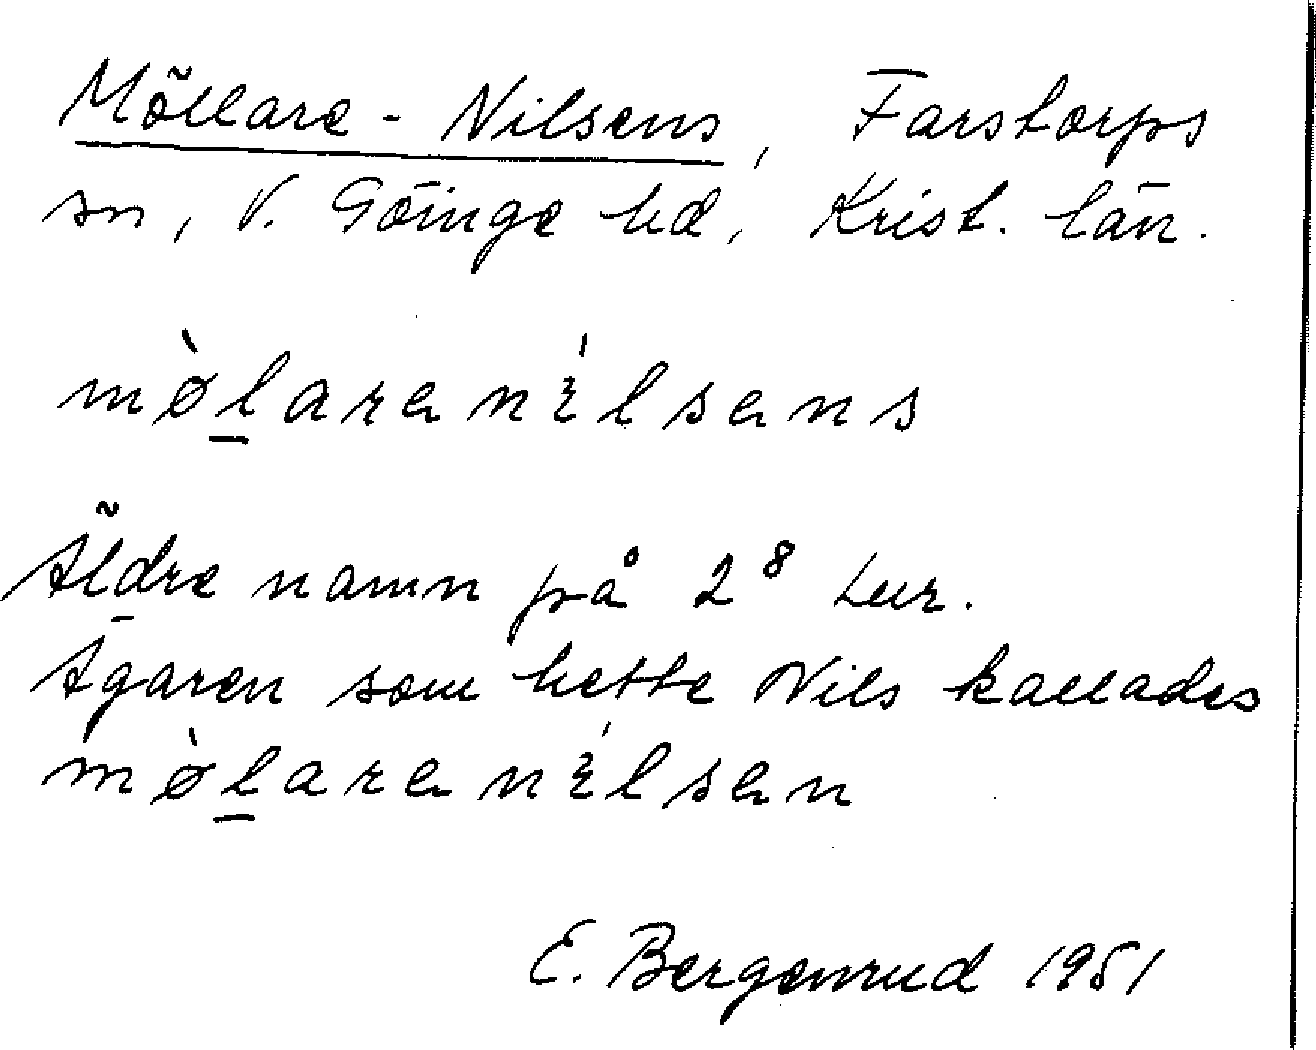 Möllare-Nilsens, Farstorps
sn, V. Göinge hd, Krist. län.
mø̀l̲arenílsens
Äldre namn på 2⁸ Lur.
Ägaren som hette Nils kallades
mø̀l̲arenílsen
E. Bergenrud 1951